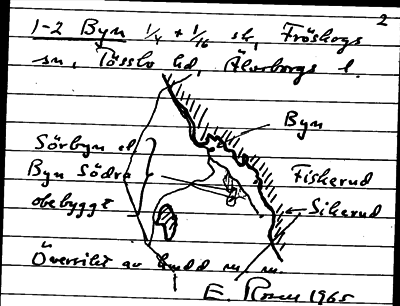 2
1-2 Byn 1/4 + 1/16 sk, Fröskogs
sn, Tössbo hd, Älvsborgs l.
Byn
Sörbyn el
Byn Södra
obebyggt
Fiskerud
Sikerud
Översikt av
E. Rosen 1965